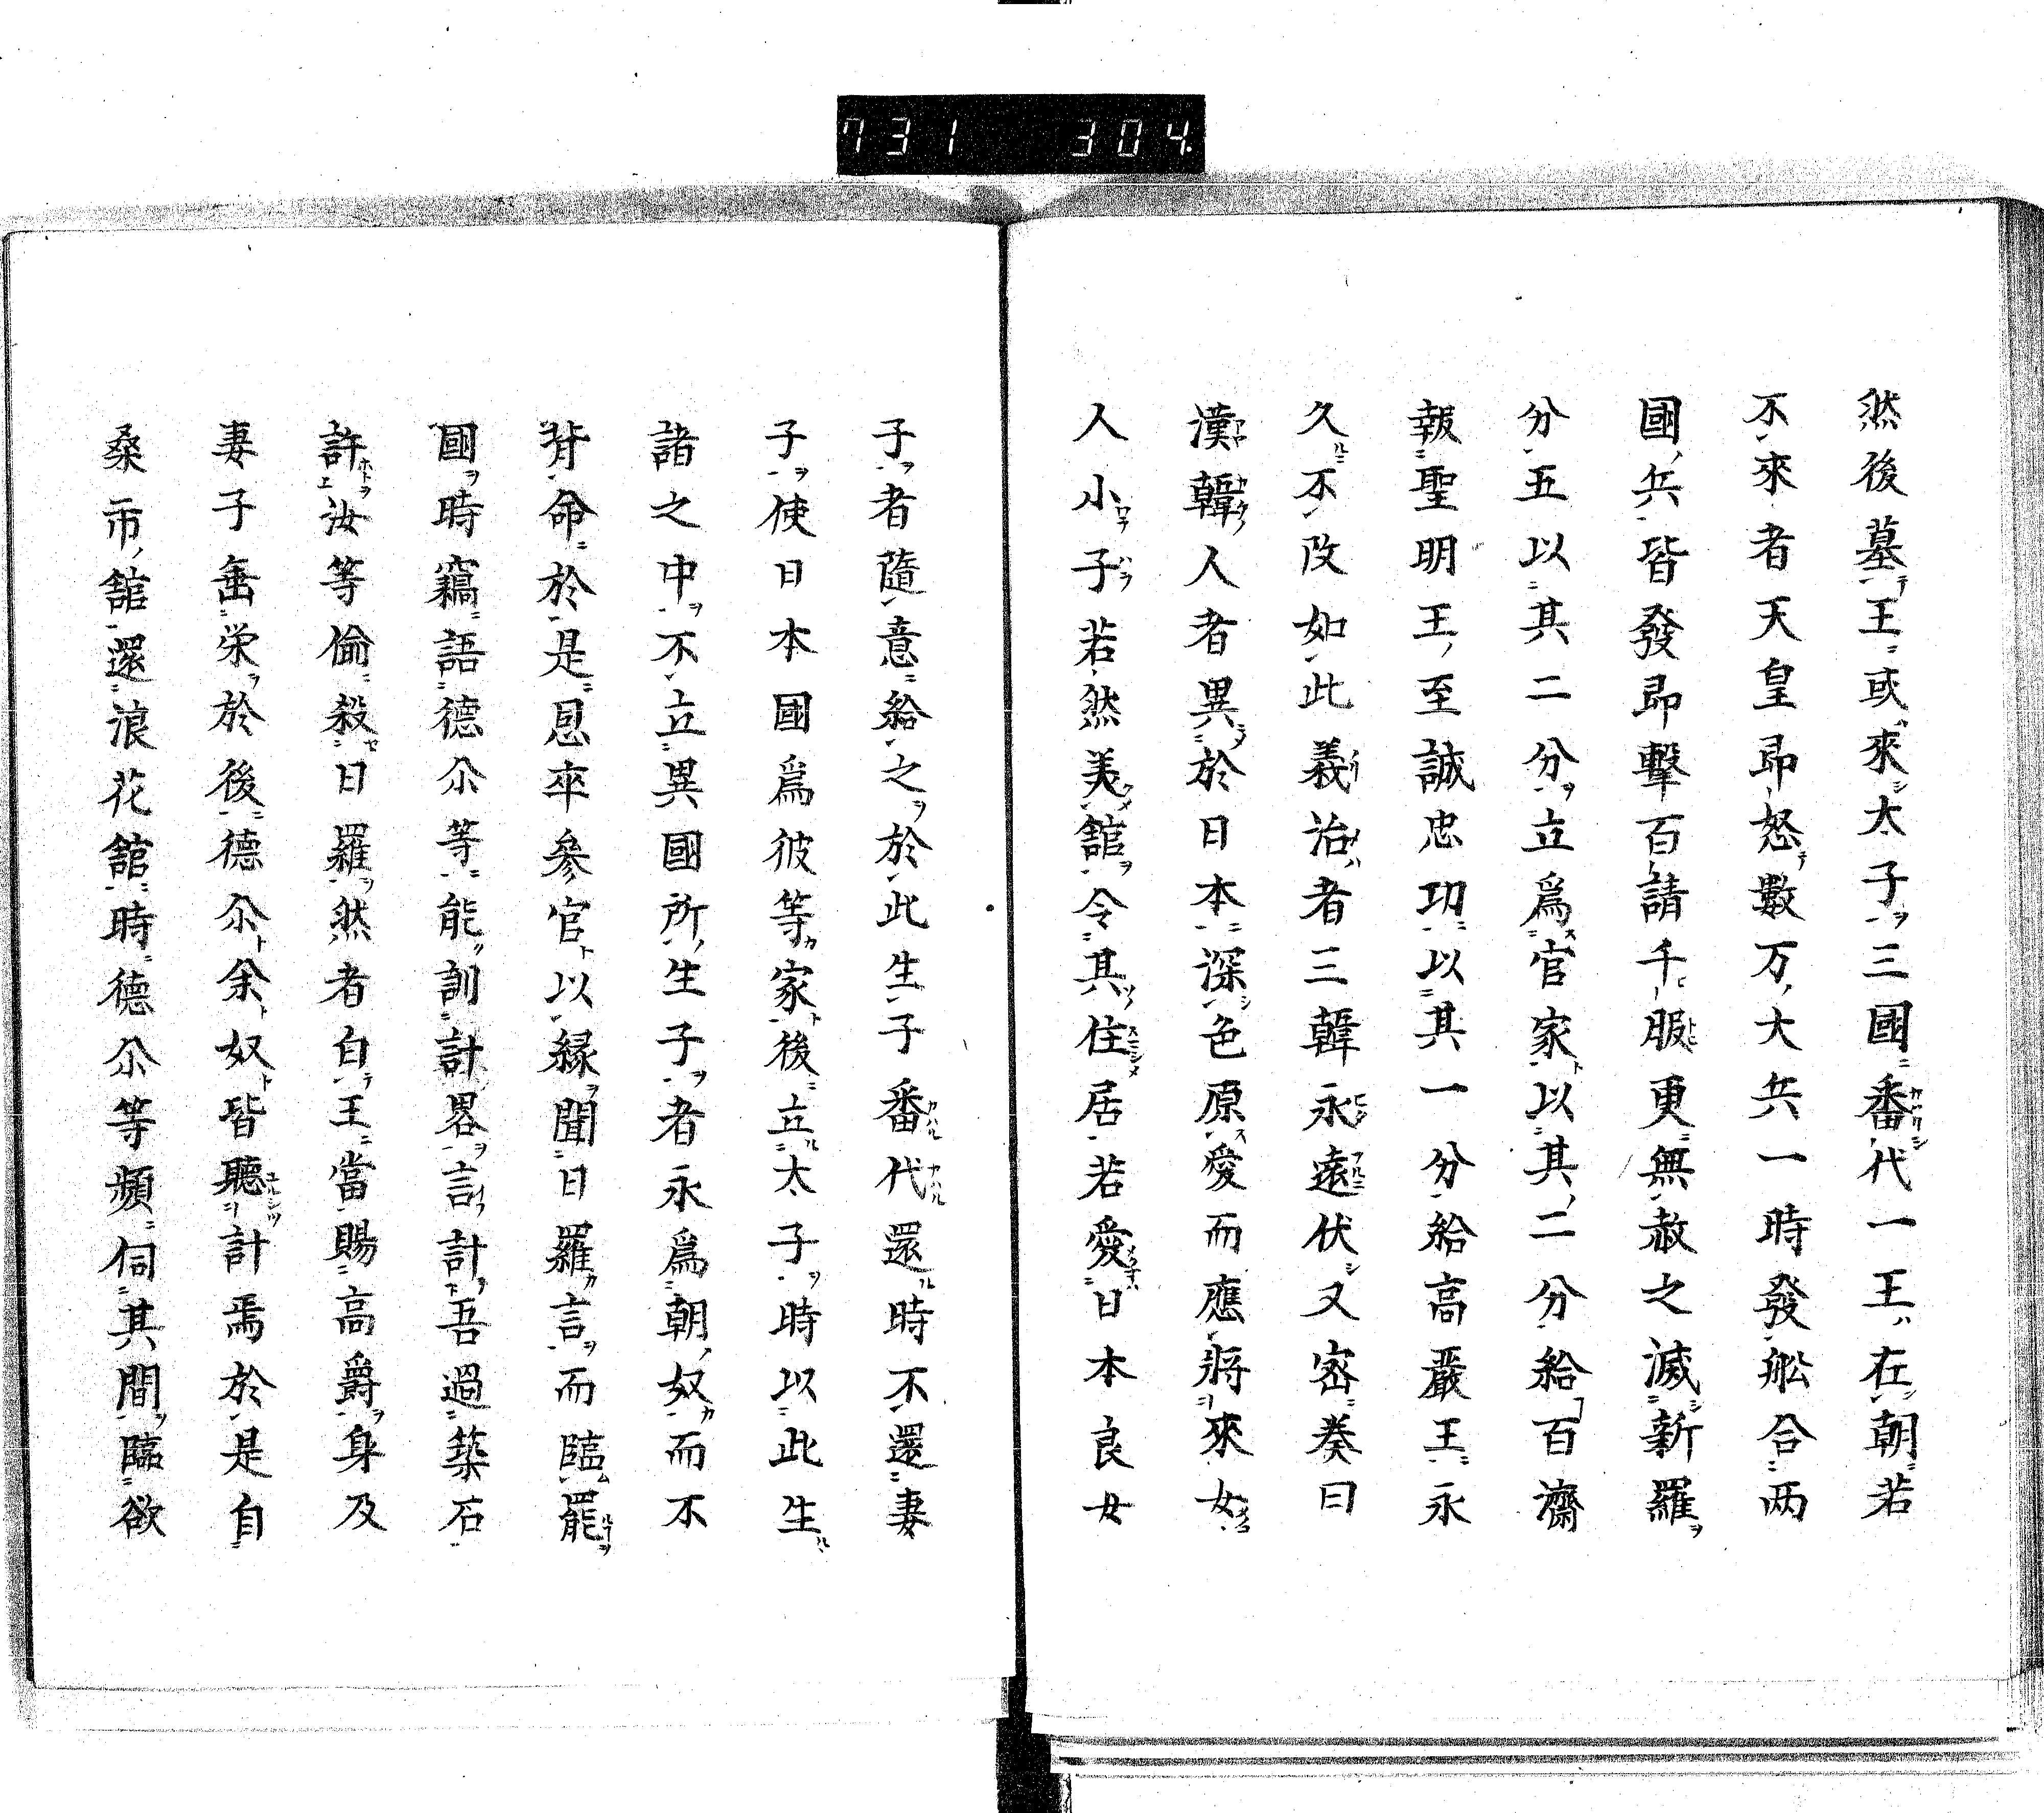 731 304
然後墓王或來太子三國番代一王在朝若
不來者天皇即怒數万大兵一時發舩合两
國兵皆發即擊百請千服更無赦之滅新羅
分五以其二分立爲官家以其二分給百濟
報聖明王至誠忠功以其一分給高嚴王永
久不改如此義治者三韓永遠伏又密奏曰
漢韓人者異於日本深色原愛而應將來女
人小子若然美舘令其住居若愛日本良女
子者隨意給之於此生子番代還時不還妻
子使日本國爲彼等家後立太子時以此生
諸之中不立異國所生子者永爲朝奴而不
背命於是恩卒參官以緣聞日羅言而臨罷
國時竊語德尒等能訓計畧言計吾過築石
許汝等偷殺日羅然者白王當賜高爵身及
妻子垂栄於後德尒余奴皆聽計焉於是自
桑市舘還浪花舘時德尒等頻伺其間臨欲